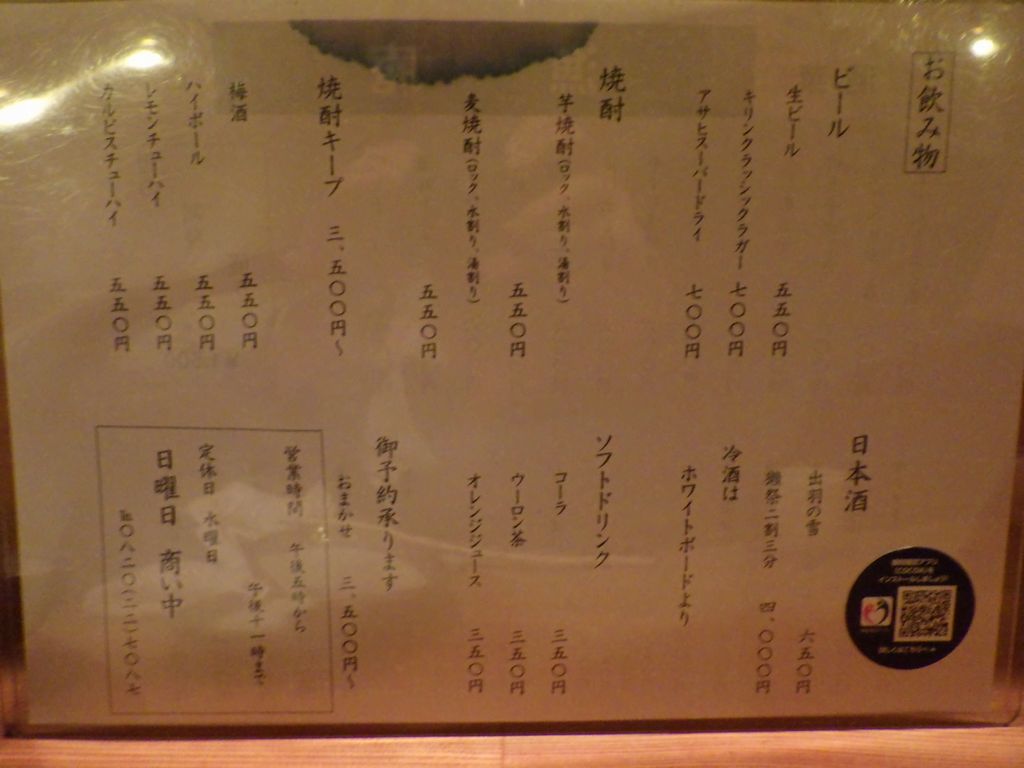 お飲み物
ビール
生ビール 五五〇円
キリンクラッシックラガー 七〇〇円
アサヒスーパードライ 七〇〇円
焼酎
芋焼酎（ロック、水割り、湯割り） 五五〇円
麦焼酎（ロック、水割り、湯割り） 五五〇円
焼酎キープ 三、五〇〇円〜
梅酒 五五〇円
ハイボール 五五〇円
レモンチューハイ 五五〇円
カルピスチューハイ 五五〇円
日本酒
出羽の雪 六五〇円
獺祭二割三分 四、〇〇〇円
冷酒は
ホワイトボードより
ソフトドリンク
コーラ 三五〇円
ウーロン茶 三五〇円
オレンジジュース 三五〇円
御予約承ります
おまかせ 三、五〇〇円〜
営業時間 午後五時から
午後十一時まで
定休日 水曜日
日曜日 商い中
インストールしましょう!
詳しくはこちらへ